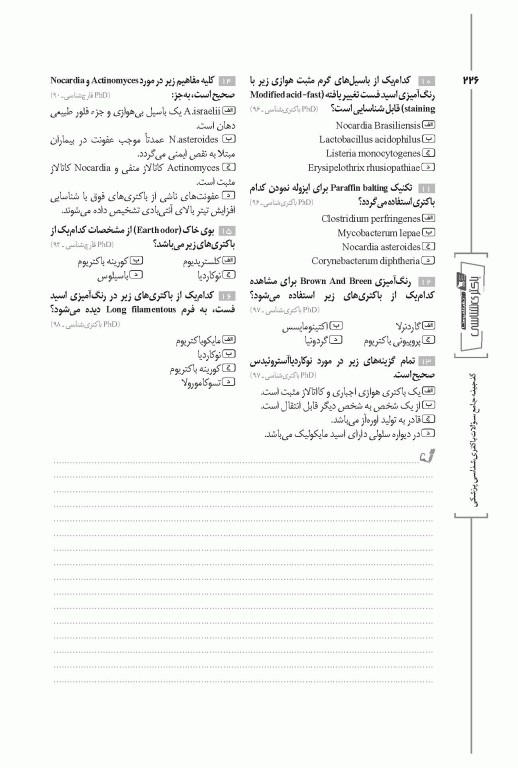 ۲۲۶
۱۰ کدام‌یک از باسیل‌های گرم مثبت هوازی زیر با
رنگ‌آمیزی اسید فست تغییر یافته (Modified acid-fast
staining) قابل شناسایی است؟ (PhD باکتری‌شناسی ـ ۹۶)
الف Nocardia Brasiliensis
ب Lactobacillus acidophilus
ج Listeria monocytogenes
د Erysipelothrix rhusiopathiae
۱۱ تکنیک Paraffin baiting برای ایزوله نمودن کدام
باکتری استفاده می‌گردد؟ (PhD باکتری‌شناسی ـ ۹۶)
الف Clostridium perfringenes
ب Mycobacterum lepae
ج Nocardia asteroides
د Corynebacterum diphtheria
۱۲ رنگ‌آمیزی Brown And Breen برای مشاهده
کدام‌یک از باکتری‌های زیر استفاده می‌شود؟
(PhD باکتری‌شناسی ـ ۹۷)
الف گاردنرلا ب اکتینومایسس
ج پروپیونی باکتریوم د گردونیا
۱۳ تمام گزینه‌های زیر در مورد نوکاردیاآستروئیدس
صحیح است. (PhD باکتری‌شناسی ـ ۹۷)
الف یک باکتری هوازی اجباری و کاتالاز مثبت است.
ب از یک شخص به شخص دیگر قابل انتقال است.
ج قادر به تولید اوره‌آز می‌باشد.
د در دیواره سلولی دارای اسید مایکولیک می‌باشد.
۱۴ کلیه مفاهیم زیر در مورد Actinomyces و Nocardia
صحیح است، به‌جز: (PhD قارچ‌شناسی ـ ۹۰)
الف A.israelii یک باسیل بی‌هوازی و جزء فلور طبیعی
دهان است.
ب N.asteroides عمدتاً موجب عفونت در بیماران
مبتلا به نقص ایمنی می‌گردد.
ج Actinomyces کاتالاز منفی و Nocardia کاتالاز
مثبت است.
د عفونت‌های ناشی از باکتری‌های فوق با شناسایی
افزایش تیتر بالای آنتی‌بادی تشخیص داده می‌شوند.
۱۵ بوی خاک (Earth odor) از مشخصات کدام‌یک از
باکتری‌های زیر می‌باشد؟ (PhD قارچ‌شناسی ـ ۹۲)
الف کلستریدیوم ب کورینه باکتریوم
ج نوکاردیا د باسیلوس
۱۶ کدام‌یک از باکتری‌های زیر در رنگ‌آمیزی اسید
فست، به فرم Long filamentous دیده می‌شود؟
(PhD باکتری‌شناسی ـ ۹۸)
الف مایکوباکتریوم
ب نوکاردیا
ج کورینه باکتریوم
د تسوکامورولا
باکتری‌شناسی
گنجینه جامع سوالات باکتری‌شناسی پزشکی